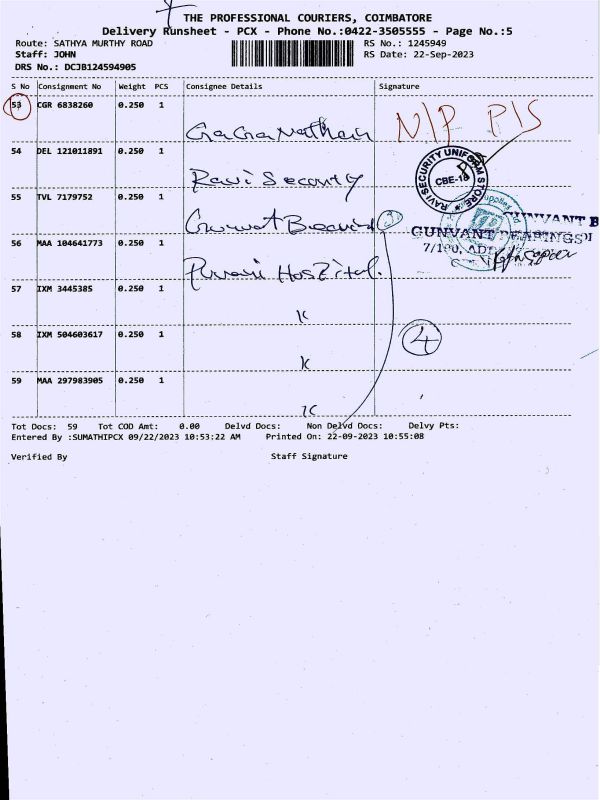 THE PROFESSIONAL COURIERS, COIMBATORE
Delivery Runsheet - PCX - Phone No.:0422-3505555 - Page No.:5
Route: SATHYA MURTHY ROAD RS No.: 1245949
Staff: JOHN RS Date: 22-Sep-2023
DRS No.: DCJB124594905
S No Consignment No Weight PCS Consignee Details Signature
53 CGR 6838260 0.250 1 N/P P/S
54 DEL 121011891 0.250 1 Ravi Security RAVI SECURITY UNIFORM STORE CBE-18
55 TVL 7179752 0.250 1 3 GUNVANT B
GUNVANT BEARINGS
56 MAA 104641773 0.250 1 Hospital. 7/190,
57 IXM 3445385 0.250 1 K
58 IXM 504603617 0.250 1 K 4
59 MAA 297983905 0.250 1 K
Tot Docs: 59 Tot COD Amt: 0.00 Delvd Docs: Non Delvd Docs: Delvy Pts:
Entered By :SUMATHIPCX 09/22/2023 10:53:22 AM Printed On: 22-09-2023 10:55:08
Verified By Staff Signature